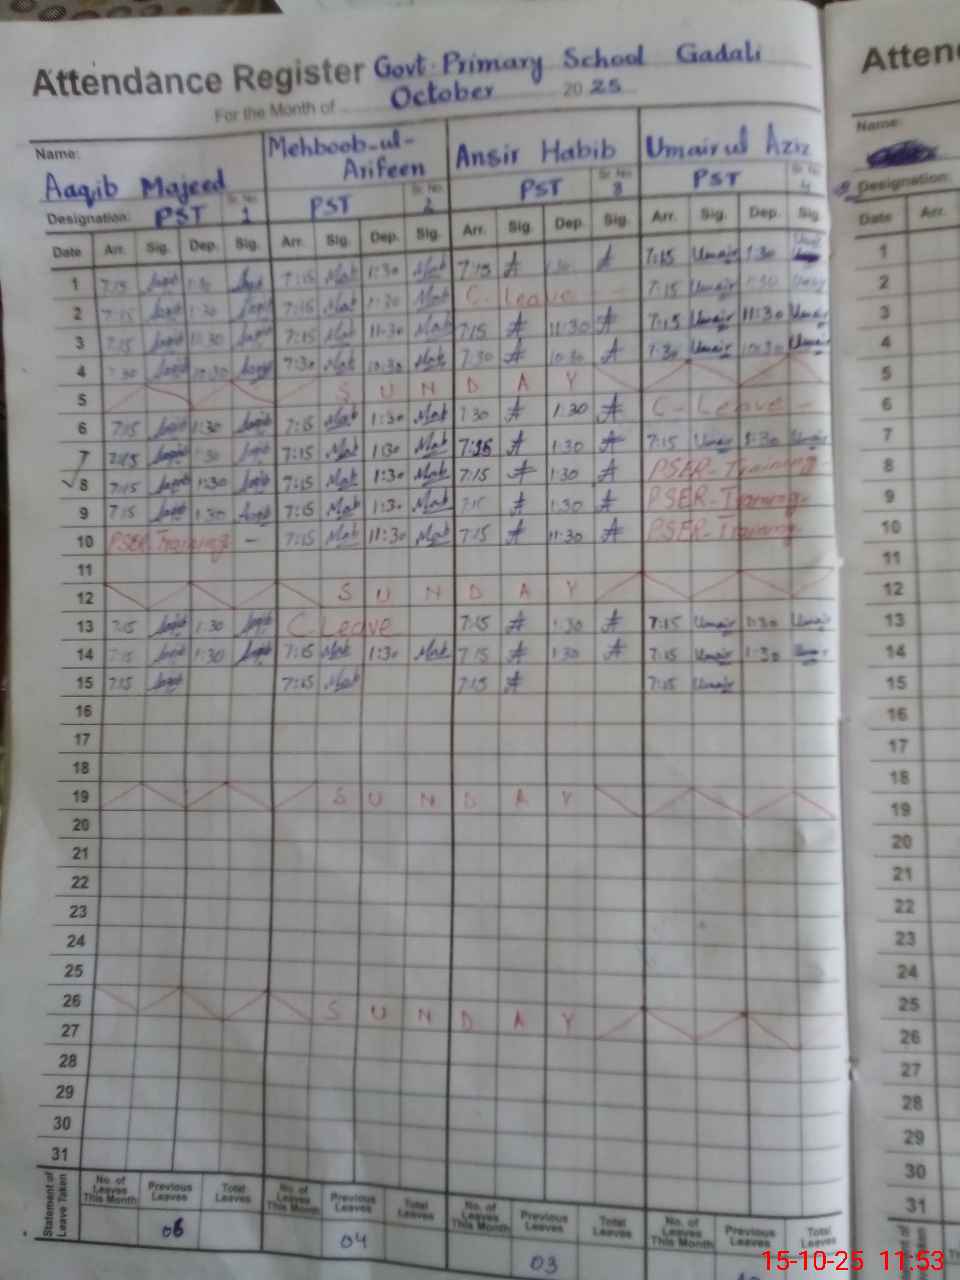 Attendance Register Govt Primary School Gadali
For the Month of October 2025
Name: Aaqib Majeed Mehboob-ul-Arifeen Ansir Habib Umair ul Aziz
Designation: PST Sr. No. 1 PST Sr. No. 2 PST Sr. No. 3 PST Sr. No. 4
Date Arr. Sig. Dep. Sig. Arr. Sig. Dep. Sig. Arr. Sig. Dep. Sig. Arr. Sig. Dep. Sig.
1 7:15 1:30 7:15 1:30 7:15 A 1:30 A 7:15 Umair 1:30
2 7:15 1:30 7:15 1:30 C-Leave 7:15 Umair 1:30
3 7:15 11:30 7:15 11:30 7:15 A 11:30 A 7:15 Umair 11:30 Umair
4 7:30 10:30 7:30 10:30 7:30 A 10:30 A 7:30 Umair 10:30 Umair
5 S U N D A Y
6 7:15 1:30 7:15 1:30 7:30 A 1:30 A C-Leave -
7 7:15 1:30 7:15 1:30 7:15 A 1:30 A 7:15 Umair 1:30 Umair
8 7:15 1:30 7:15 1:30 7:15 A 1:30 A PSER-Training-
9 7:15 1:30 7:15 1:30 7:15 A 1:30 A PSER-Training-
10 PSER Training - 7:15 11:30 7:15 A 11:30 A PSER-Training
11
12 S U N D A Y
13 7:15 1:30 C-Leave 7:15 A 1:30 A 7:15 Umair 1:30 Umair
14 7:15 1:30 7:15 1:30 7:15 A 1:30 A 7:15 Umair 1:30 Umair
15 7:15 7:15 7:15 A 7:15 Umair
16
17
18
19 S U N D A Y
20
21
22
23
24
25
26 S U N D A Y
27
28
29
30
31
Statement of Leave Taken
No. of Leaves This Month Previous Leaves Total Leaves No. of Leaves This Month Previous Leaves Total Leaves No. of Leaves This Month Previous Leaves Total Leaves No. of Leaves This Month Previous Leaves Total Leaves
06 04 03
Name:
Designation:
Date Arr.
1
2
3
4
5
6
7
8
9
10
11
12
13
14
15
16
17
18
19
20
21
22
23
24
25
26
27
28
29
30
31
15-10-25 11:53